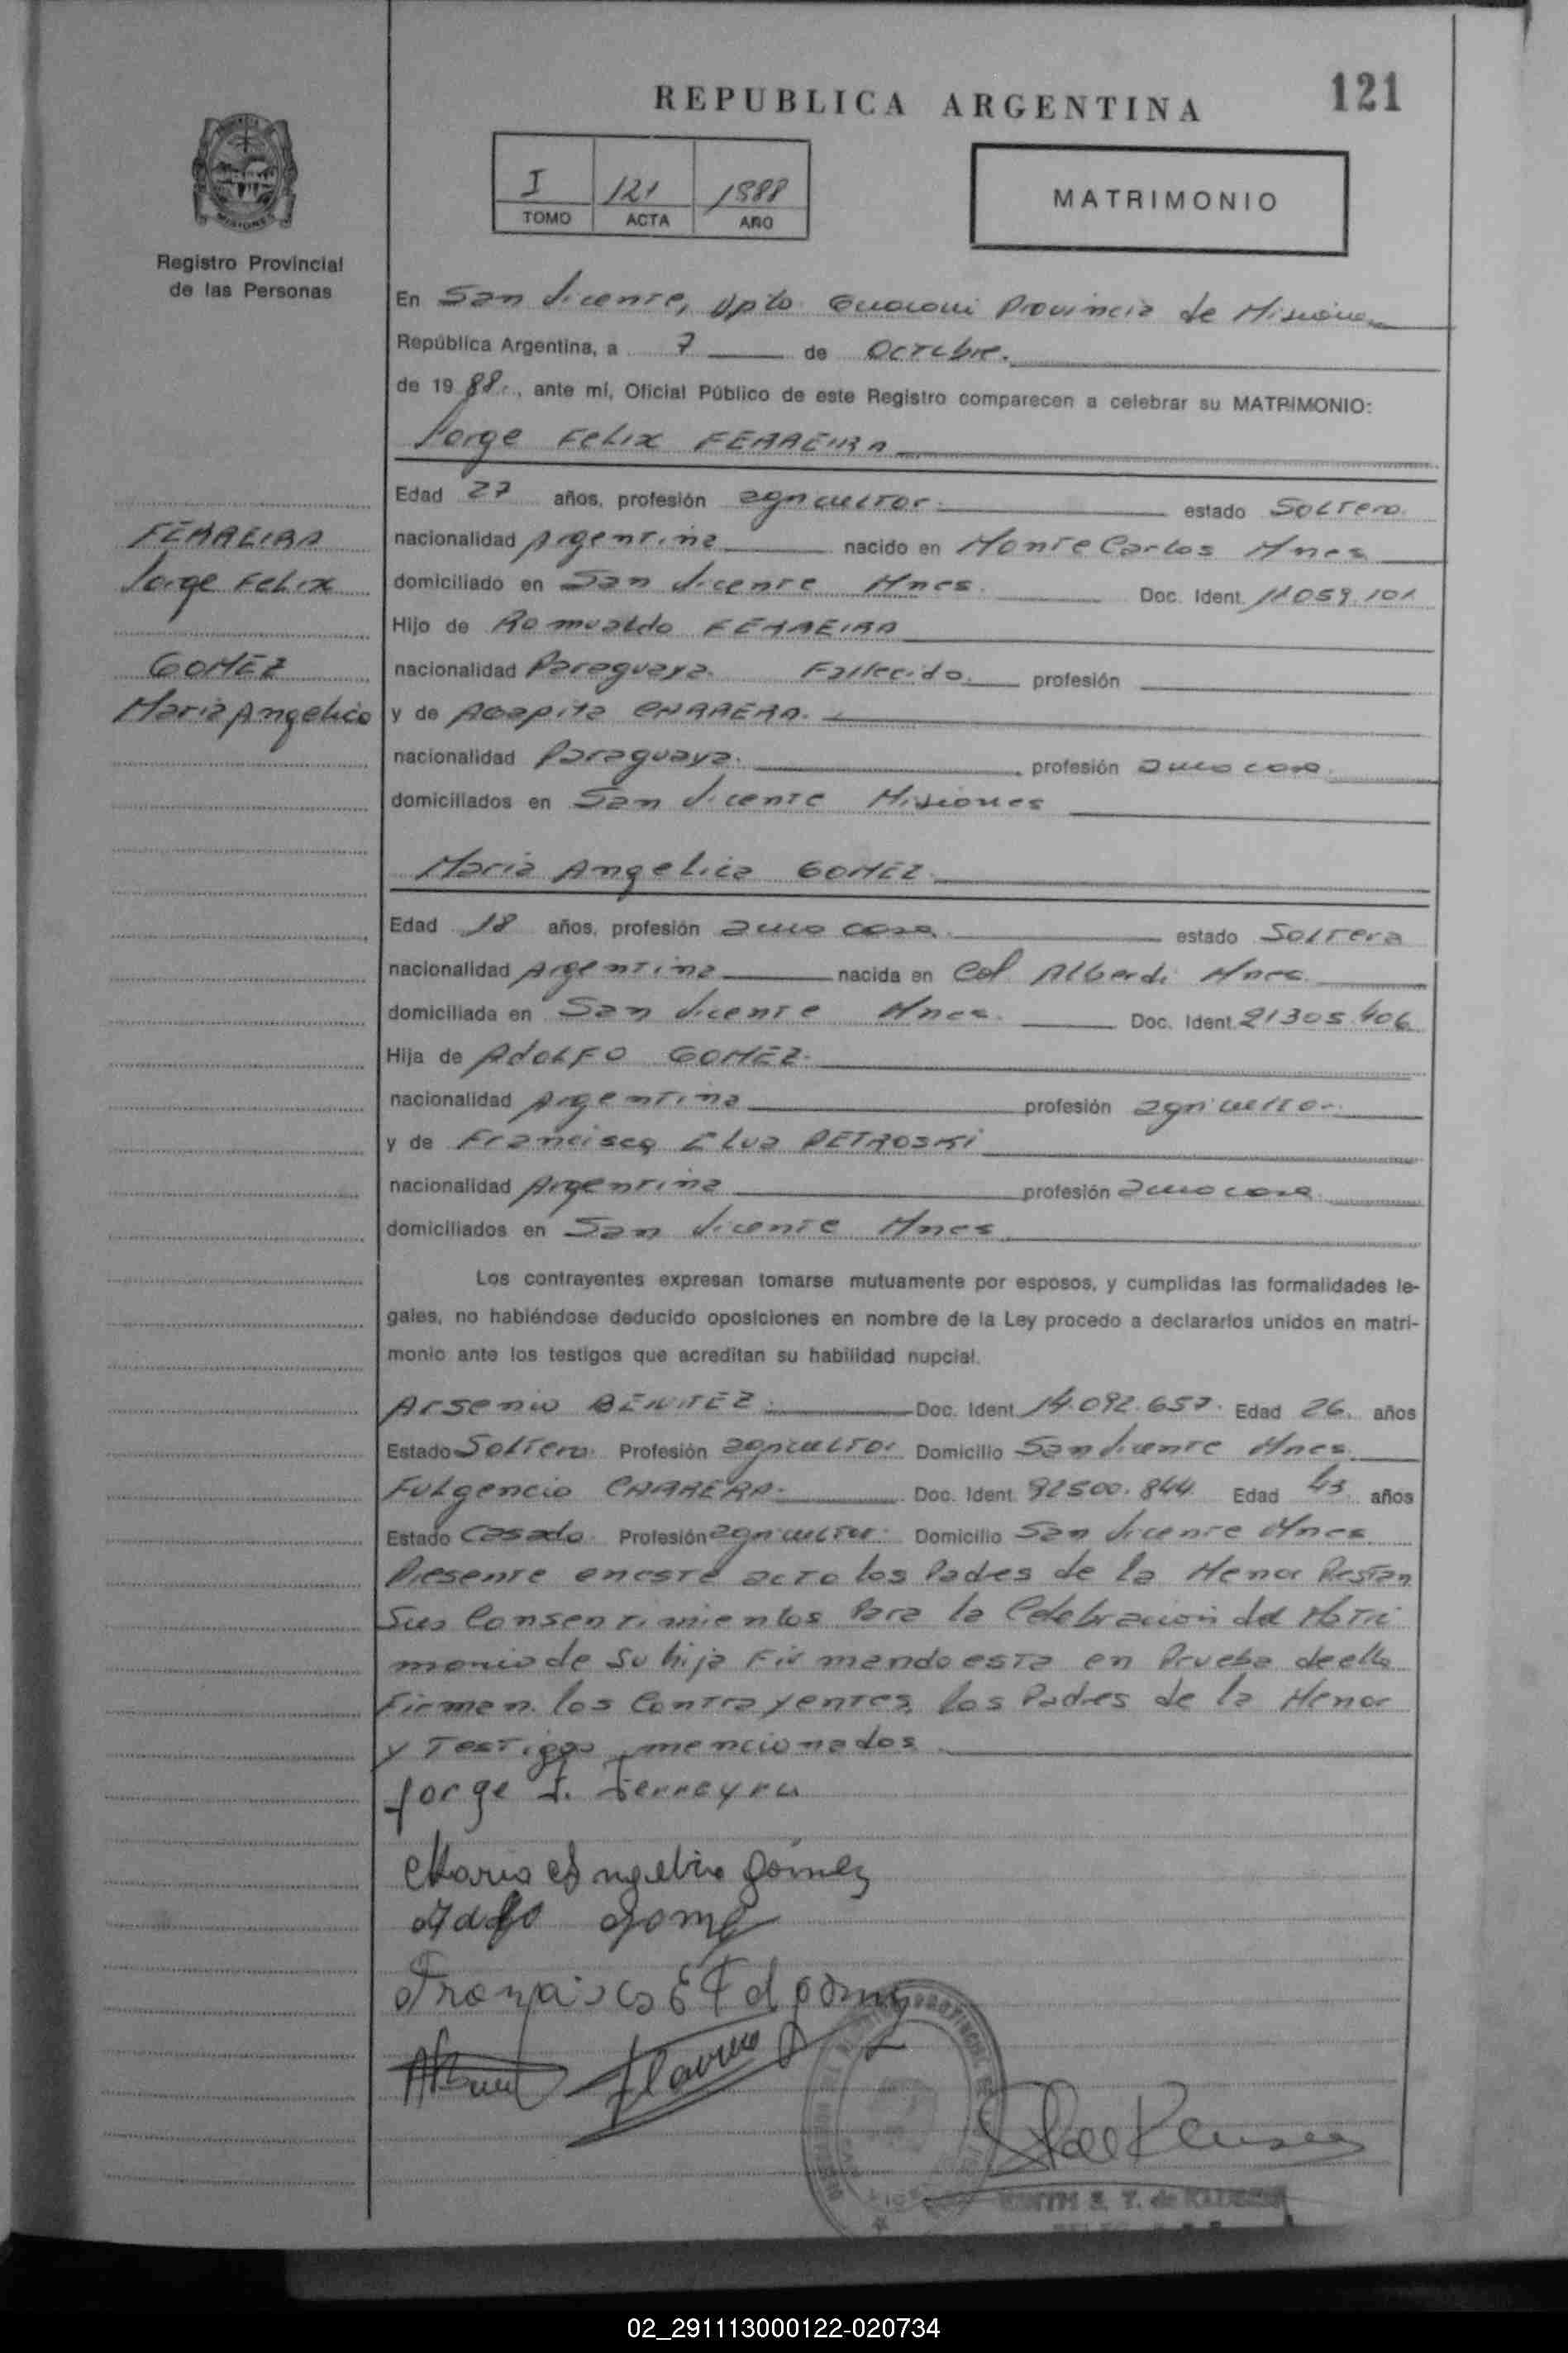 REPUBLICA ARGENTINA
121
I 121 1988
TOMO ACTA AÑO
MATRIMONIO
Registro Provincial
de las Personas
En San Vicente, Dpto Guarani Provincia de Misiones
República Argentina, a 7 de Octubre.
de 19 88., ante mí, Oficial Público de este Registro comparecen a celebrar su MATRIMONIO:
Jorge Felix FERREIRA
Edad 27 años, profesión agricultor. estado Soltero.
FERREIRA
nacionalidad Argentina nacido en Monte Carlos Mnes
Jorge Felix
domiciliado en San Vicente Mnes. Doc. Ident. 11059.101
Hijo de Romualdo FERREIRA
GOMEZ
nacionalidad Paraguaya. Fallecido. profesión
Maria Angelica
y de Agapita CARRERA.
nacionalidad Paraguaya. profesión ama casa.
domiciliados en San Vicente Misiones
Maria Angelica GOMEZ.
Edad 18 años, profesión ama casa. estado Soltera
nacionalidad Argentina nacida en Col Alberdi Mnes.
domiciliada en San Vicente Mnes. Doc. Ident. 21305.406
Hija de Adolfo GOMEZ.
nacionalidad Argentina profesión agricultor.
y de Francisca Elva PETROSKI
nacionalidad Argentina profesión ama casa.
domiciliados en San Vicente Mnes
Los contrayentes expresan tomarse mutuamente por esposos, y cumplidas las formalidades le-
gales, no habiéndose deducido oposiciones en nombre de la Ley procedo a declararlos unidos en matri-
monio ante los testigos que acreditan su habilidad nupcial.
Arsenio BENITEZ. Doc. Ident. 14.092.657. Edad 26. años
Estado Soltero. Profesión agricultor Domicilio San Vicente Mnes.
Fulgencio CARRERA. Doc. Ident. 92500.844 Edad 43 años
Estado Casado. Profesión agricultor. Domicilio San Vicente Mnes.
Presente en este acto los Padres de la Menor Prestan
Sus Consentimientos Para la Celebración del Matri
monio de su hija Firmando esta en Prueba de ello
Firman. los Contrayentes, los Padres de la Menor
y Testigos mencionados.
Jorge F. Ferreyra
Maria Angelica Gómez
Adolfo Gomez
02_291113000122-020734